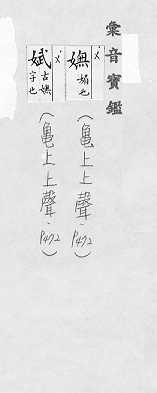 彙音寶鑑
嫵 媚也
(龜上上聲，P472)
㛂 古嫵字也
(龜上上聲，P472)